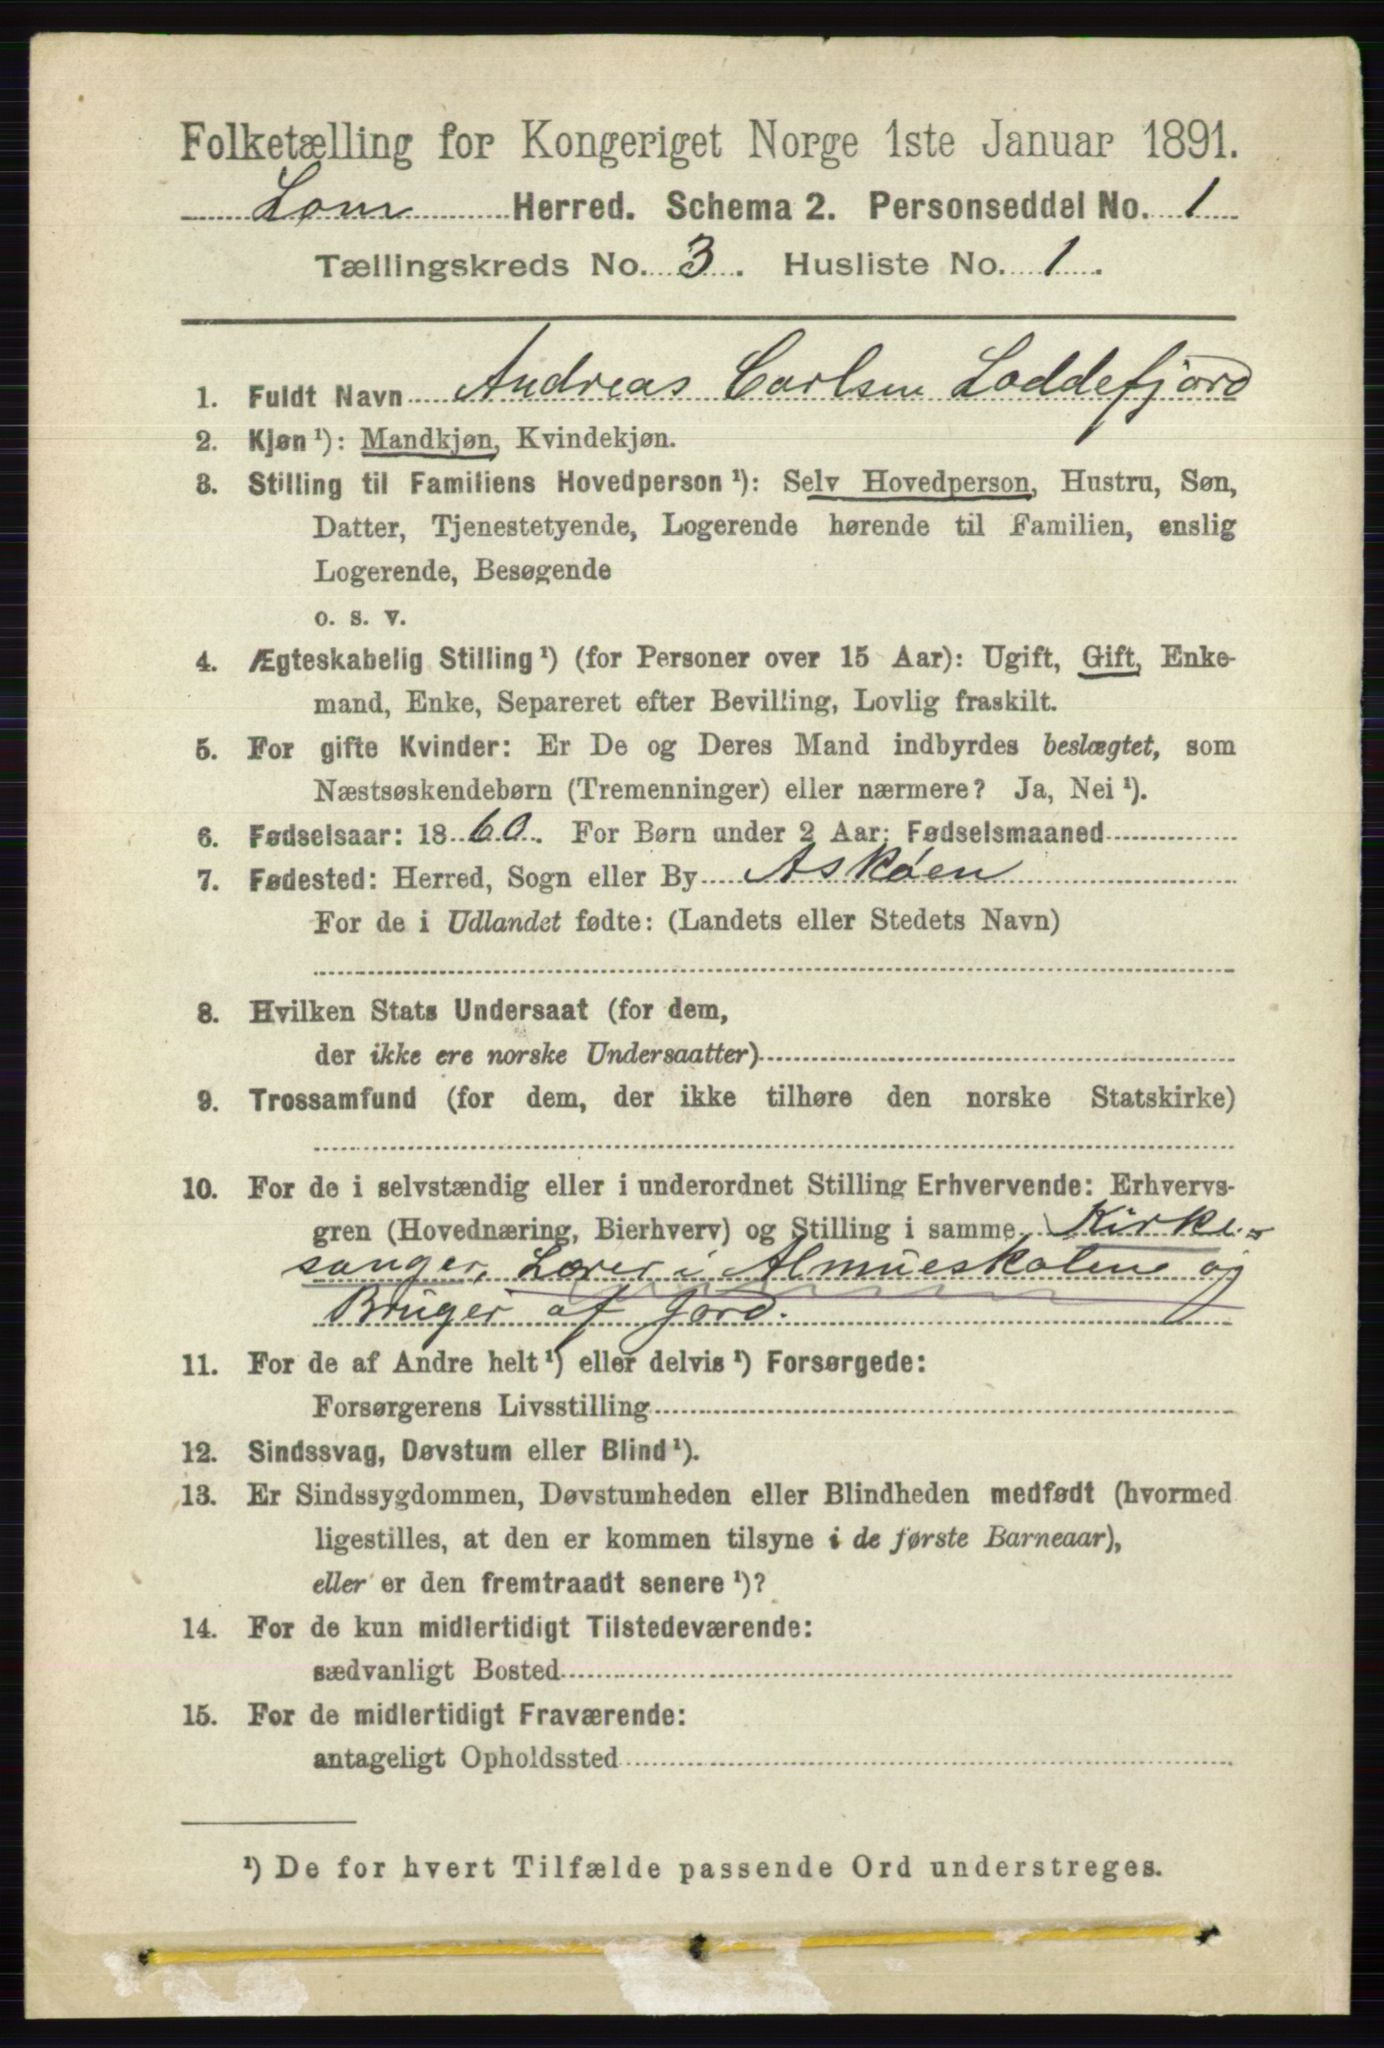 Folketælling for Kongeriget Norge 1ste Januar 1891.
Lom Herred. Schema 2. Personseddel No. 1
Tællingskreds No. 3. Husliste No. 1.
1. Fuldt Navn Andreas Carlsen Loddefjord
2. Kjøn¹): Mandkjøn, Kvindekjøn.
3. Stilling til Familiens Hovedperson¹): Selv Hovedperson, Hustru, Søn,
Datter, Tjenestetyende, Logerende hørende til Familien, enslig
Logerende, Besøgende
o. s. v.
4. Ægteskabelig Stilling¹) (for Personer over 15 Aar): Ugift, Gift, Enke-
mand, Enke, Separeret efter Bevilling, Lovlig fraskilt.
5. For gifte Kvinder: Er De og Deres Mand indbyrdes beslægtet, som
Næstsøskendebørn (Tremenninger) eller nærmere? Ja, Nei¹).
6. Fødselsaar: 1860. For Børn under 2 Aar: Fødselsmaaned
7. Fødested: Herred, Sogn eller By Askøen
For de i Udlandet fødte: (Landets eller Stedets Navn)
8. Hvilken Stats Undersaat (for dem,
der ikke ere norske Undersaatter)
9. Trossamfund (for dem, der ikke tilhøre den norske Statskirke)
10. For de i selvstændig eller i underordnet Stilling Erhvervende: Erhvervs-
gren (Hovednæring, Bierhverv) og Stilling i samme Kirke-
sanger, Lærer i Almueskolen og
Bruger af Jord.
11. For de af Andre helt¹) eller delvis¹) Forsørgede:
Forsørgerens Livsstilling
12. Sindssvag, Døvstum eller Blind¹).
13. Er Sindssygdommen, Døvstumheden eller Blindheden medfødt (hvormed
ligestilles, at den er kommen tilsyne i de første Barneaar),
eller er den fremtraadt senere¹)?
14. For de kun midlertidigt Tilstedeværende:
sædvanligt Bosted
15. For de midlertidigt Fraværende:
antageligt Opholdssted
¹) De for hvert Tilfælde passende Ord understreges.